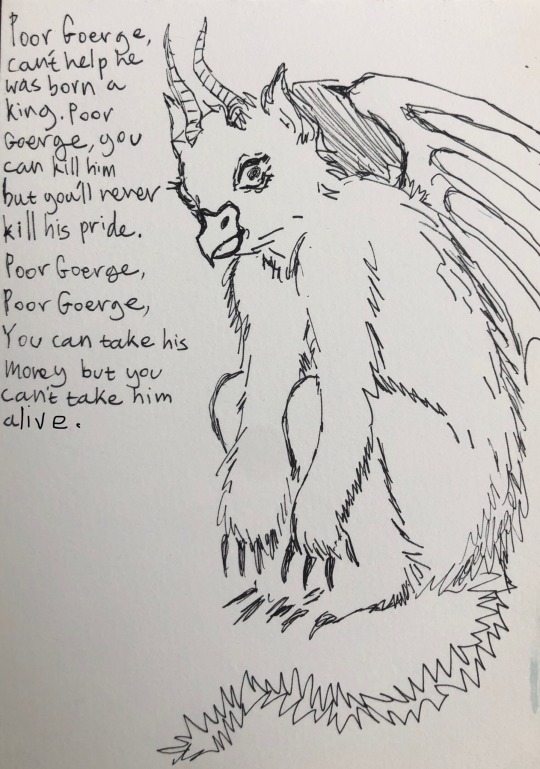 Poor Goerge,
can't help he
was born a
king. Poor
Goerge, you
can kill him
but you'll never
kill his pride.
Poor Goerge,
Poor Goerge,
You can take his
money but you
can't take him
alive.